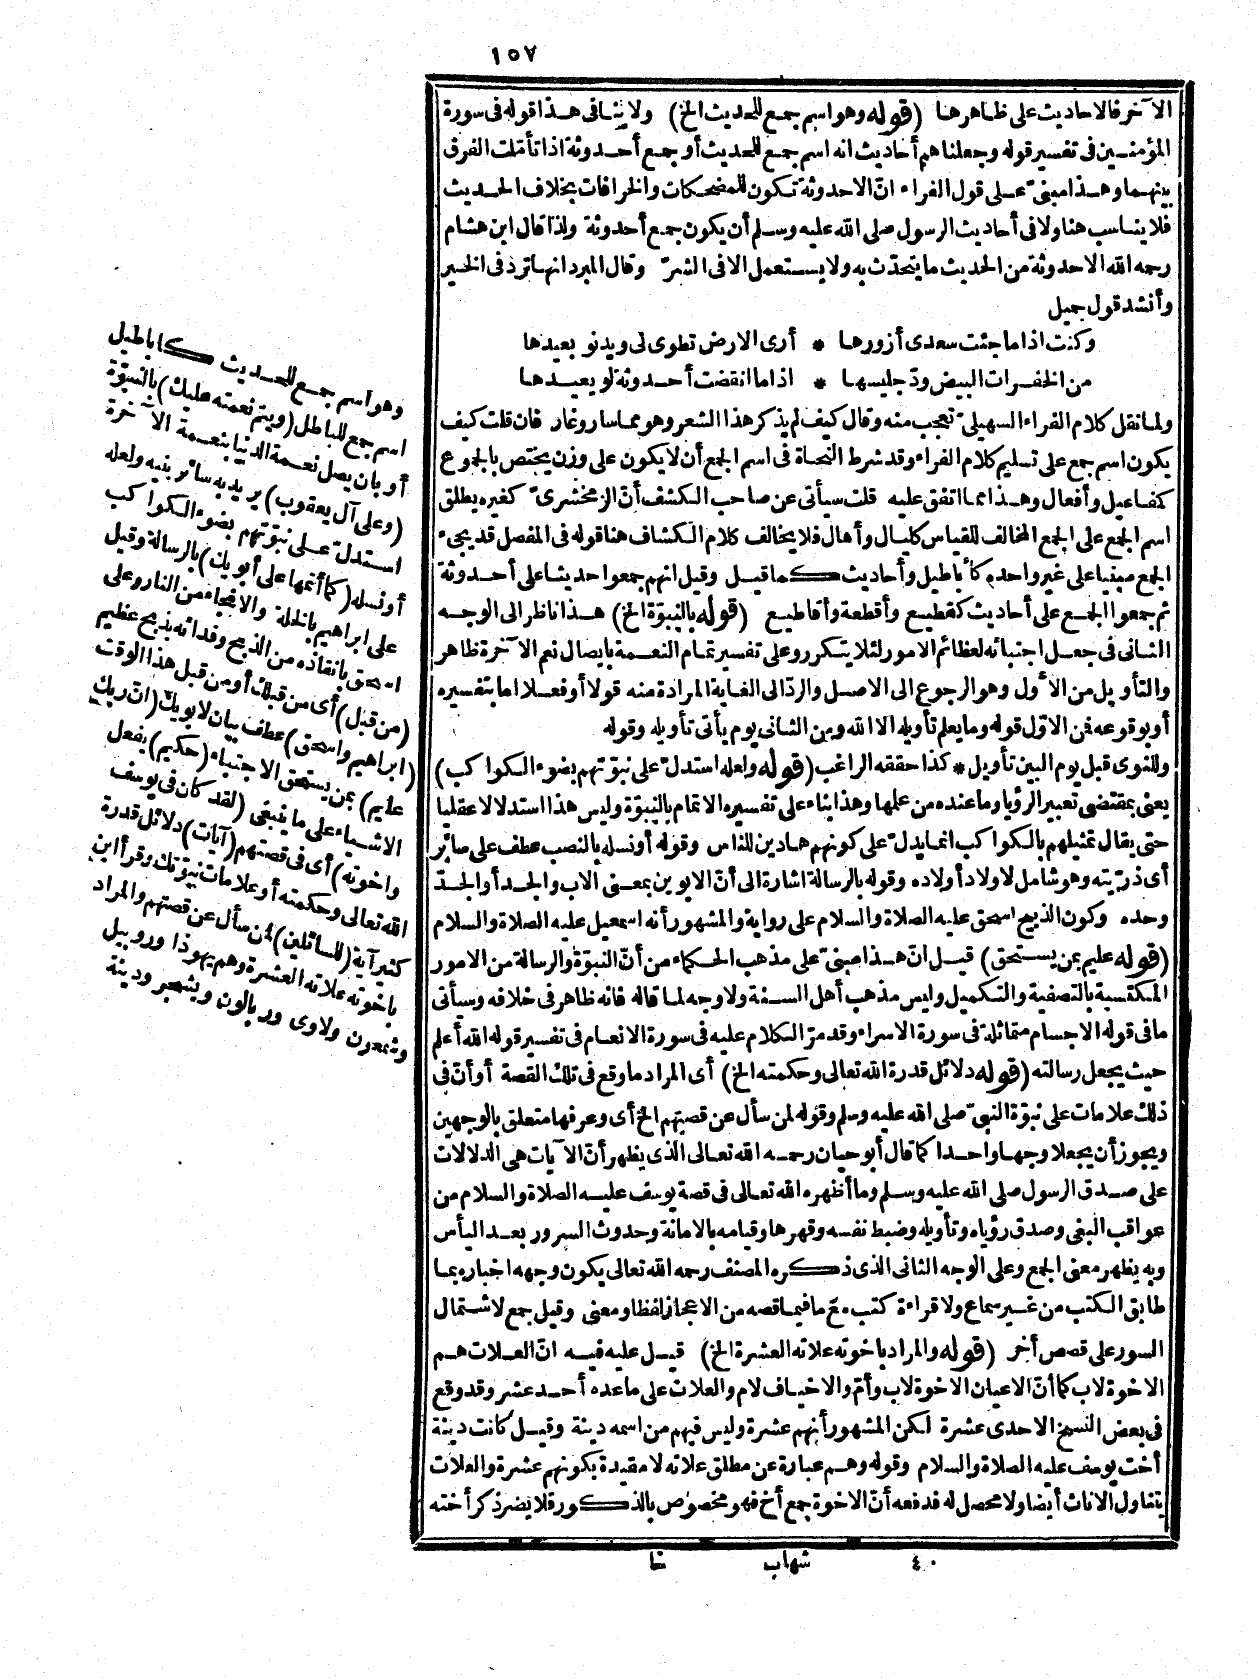 ١٥٧
الآخر فالاحاديث على ظاهرها (قوله وهو اسم جمع للحديث الخ) ولا ينافى هذا قوله فى سورة
المؤمنين فى تفسير قوله وجعلناهم أحاديث انه اسم جمع للحديث أو جمع أحدوثة اذا تأملت الفرق
بينهما وهذا مبنىّ على قول الفراء انّ الاحدوثة تكون للمضحكات والخرافات بخلاف الحديث
فلا يناسب هنا ولا فى أحاديث الرسول صلى الله عليه وسلم أن يكون جمع أحدوثة ولذا قال ابن هشام
رحمه الله الاحدوثة من الحديث ما يتحدّث به ولا يستعمل الا فى الشرّ وقال المبرد انها ترد فى الخير
وأنشد قول جميل
وكنت اذا ما جئت سعدى أزورها * أرى الارض تطوى لى ويدنو بعيدها
من الخفرات البيض ودّ جليسها * اذا ما انقضت أحدوثة لو يعيدها
ولما نقل كلام الفراء السهيلىّ تعجب منه وقال كيف لم يذكر هذا الشعر وهو مما سار وغار فان قلت كيف
يكون اسم جمع على تسليم كلام الفراء وقد شرط النحاة فى اسم الجمع أن لا يكون على وزن يختص بالجموع
كفاعيل وأفعال وهذا مما اتفق عليه قلت سيأتى عن صاحب الكشف أنّ الزمخشرىّ كغيره يطلق
اسم الجمع على الجمع المخالف للقياس كليال وأهال فلا يخالف كلام الكشاف هنا قوله فى المفصل قد يجىء
الجمع مبنيا على غير واحده كأباطيل وأحاديث كما قيل وقيل انهم جمعوا حديثا على أحدوثة
ثم جمعوا الجمع على أحاديث كقطيع وأقطعة وأقاطيع (قوله بالنبوّة الخ) هذا ناظر الى الوجه
الثانى فى جعل اجتبائه لعظائم الامور لئلا يتكرر وعلى تفسير تمام النعمة بايصال نعم الآخرة ظاهر
والتأويل من الأول وهو الرجوع الى الاصل والردّ الى الغاية المرادة منه قولا أو فعلا اما بتفسيره
أو بوقوعه فمن الاوّل قوله وما يعلم تأويله الا الله ومن الثانى يوم يأتى تأويله وقوله
وللنوى قبل يوم البين تأويل * كذا حققه الراغب (قوله ولعله استدلّ على نبوّتهم بضوء الكواكب)
يعنى بمقتضى تعبير الرؤيا وما عنده من علمها وهذا بناء على تفسيره الاتمام بالنبوّة وليس هذا استدلالا عقليا
حتى يقال تمثيلهم بالكواكب انما يدلّ على كونهم هادين للناس وقوله أو نسله بالنصب عطف على سائر
أى ذرّيته وهو شامل لاولاد أولاده وقوله بالرسالة اشارة الى أنّ الابوين بمعنى الاب والجد أو الجدّ
وحده وكون الذبيح اسحق عليه الصلاة والسلام على رواية والمشهور أنه اسمعيل عليه الصلاة والسلام
(قوله عليم بمن يستحق) قيل انّ هذا مبنىّ على مذهب الحكماء من أنّ النبوّة والرسالة من الامور
المكتسبة بالتصفية والتكميل وليس مذهب أهل السنة ولا وجه لما قاله فانه ظاهر فى خلافه وسيأتى
ما فى قوله الاجسام متماثلة فى سورة الاسراء وقد مرّ الكلام عليه فى سورة الانعام فى تفسير قوله الله أعلم
حيث يجعل رسالته (قوله دلائل قدرة الله تعالى وحكمته الخ) أى المراد ما وقع فى تلك القصة أو أنّ فى
ذلك علامات على نبوّة النبىّ صلى الله عليه وسلم وقوله لمن سأل عن قصتهم الخ أى وعرفها متعلق بالوجهين
ويجوز أن يجعلا وجها واحدا كما قال أبو حيان رحمه الله تعالى الذى يظهر أنّ الآيات هى الدلالات
على صدق الرسول صلى الله عليه وسلم وما أظهره الله تعالى فى قصة يوسف عليه الصلاة والسلام من
عواقب البغى وصدق رؤياه وتأويله وضبط نفسه وقهرها وقيامه بالامانة وحدوث السرور بعد اليأس
وبه يظهر معنى الجمع وعلى الوجه الثانى الذى ذكره المصنف رحمه الله تعالى يكون وجهه اخباره بما
طابق الكتب من غير سماع ولا قراءة كتب مع ما فيما قصه من الاعجاز لفظا ومعنى وقيل جمع لاشتمال
السور على قصص أخر (قوله والمراد باخوته علاته العشرة الخ) قيل عليه فيه انّ العلات هم
الاخوة لاب كما أنّ الاعيان الاخوة لاب وأمّ والاخياف لام والعلات على ما عده أحد عشر وقد وقع
فى بعض النسخ الاحدى عشرة لكن المشهور أنهم عشرة وليس فيهم من اسمه دينة وقيل كانت دينة
أخت يوسف عليه الصلاة والسلام وقوله وهم عبارة عن مطلق علاته لا مقيدة بكونهم عشرة والعلات
يتناول الاناث أيضا ولا محصل له فدفعه أنّ الاخوة جمع أخ فهو مخصوص بالذكور فلا يضر ذكر أخته
وهو اسم جمع للحديث كاباطيل
اسم جمع للباطل (ويتم نعمته عليك) بالنبوّة
أو بان يصل نعمة الدنيا بنعمة الآخرة
(وعلى آل يعقوب) يريد به سائر بنيه ولعله
استدلّ على نبوّتهم بضوء الكواكب
أو نسله (كما أتمها على أبويك) بالرسالة وقيل
على ابراهيم بالخلة والانجاء من النار وعلى
اسحق بانقاذه من الذبح وفدائه بذبح عظيم
(من قبل) أى من قبلك أو من قبل هذا الوقت
(ابراهيم واسحق) عطف بيان لابويك (انّ ربك
عليم) بمن يستحق الاجتباء (حكيم) يفعل
الاشياء على ما ينبغى (لقد كان فى يوسف
واخوته) أى فى قصتهم (آيات) دلائل قدرة
الله تعالى وحكمته أو علامات نبوّتك وقرأ ابن
كثير آية (للسائلين) لمن سأل عن قصتهم والمراد
باخوته علاته العشرة وهم يهوذا وروبيل
وشمعون ولاوى وربالون ويشجر ودينة
٤٠ شهاب خا